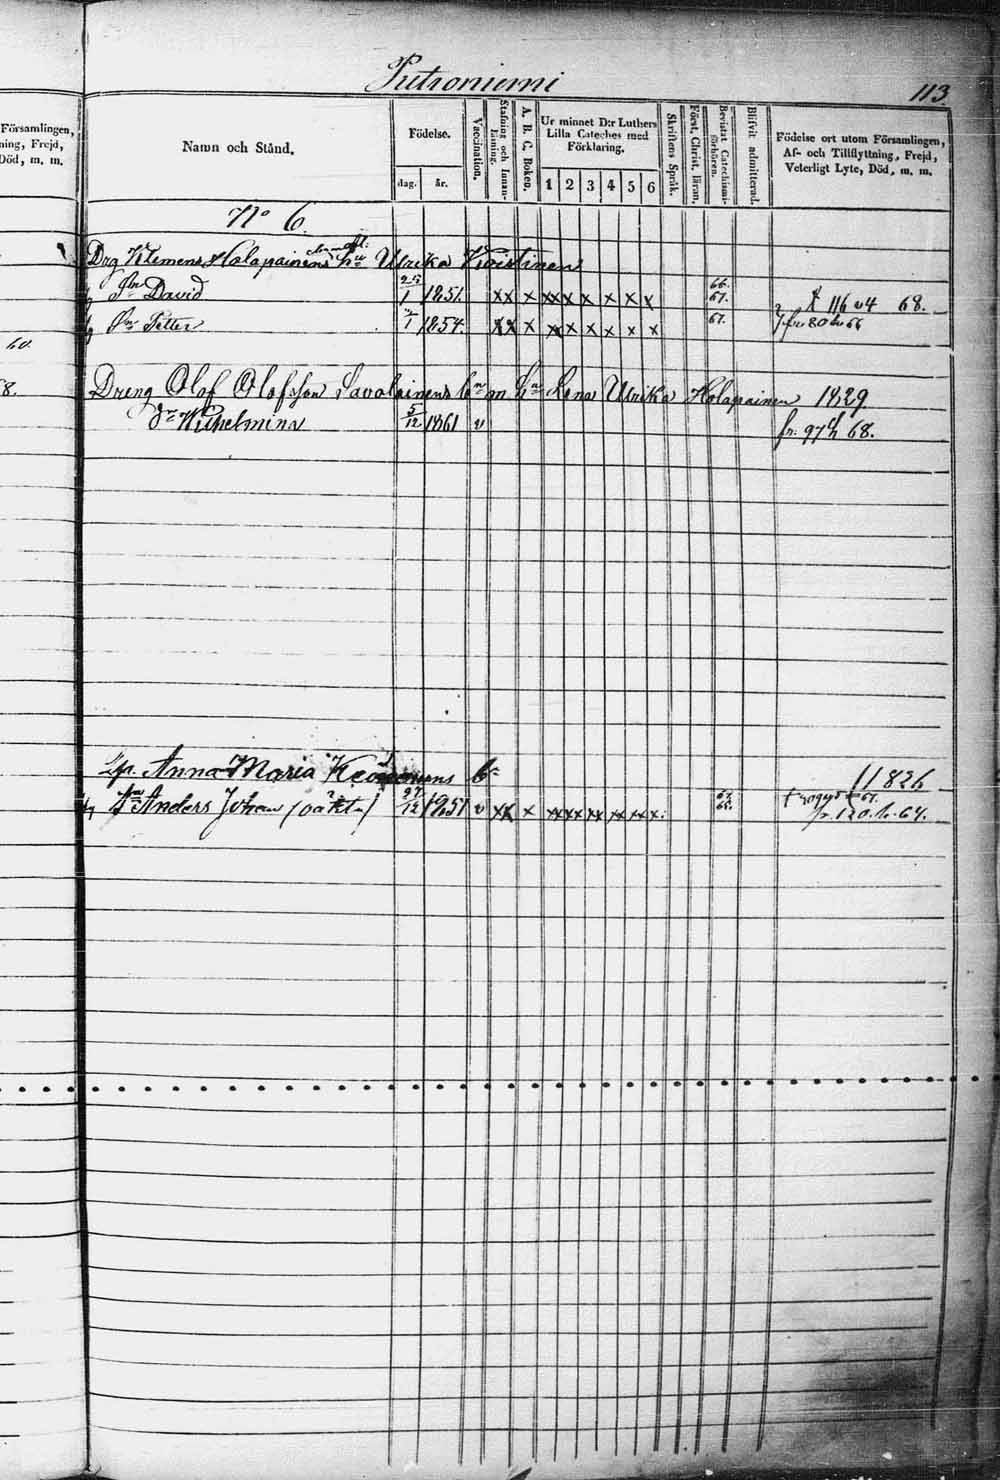 Putroniemi
113.
Församlingen,
ning, Frejd,
Död, m. m.
Namn och Stånd.
Födelse.
dag. år.
Vaccination.
Stafning och Innan-
läsning.
A. B. C. Boken.
Ur minnet D:r Luthers
Lilla Cateches med
Förklaring.
1 2 3 4 5 6
Skriftens Språk.
Först. Christ. läran.
Bevistat Catechismi-
förhören.
Blifvit admitterad.
Födelse ort utom Församlingen,
Af- och Tillflyttning, Frejd,
Veterligt Lyte, Död, m. m.
No 6.
Drg Klemens Holapainens Ulrika Koistinen
Sn David 25/1 1851. xx x xx x x x x x 66. 67. 116 v4 68.
Sn Petter 1854. xx x xx x x x x x 67. 80 66
60.
8.
Dreng Olof Olofsson Savolainens bn m hu Lena Ulrika Holapainen 1829
Dr Wilhelmina 5/12 1861 v fr. 97 h 68.
Anna Maria bn 11 826
Sn Anders Johan (oäkta) 27/12 1851 v xx x xx xx xx xx xx: 67. 65. 67.
fr. 120. h. 64.